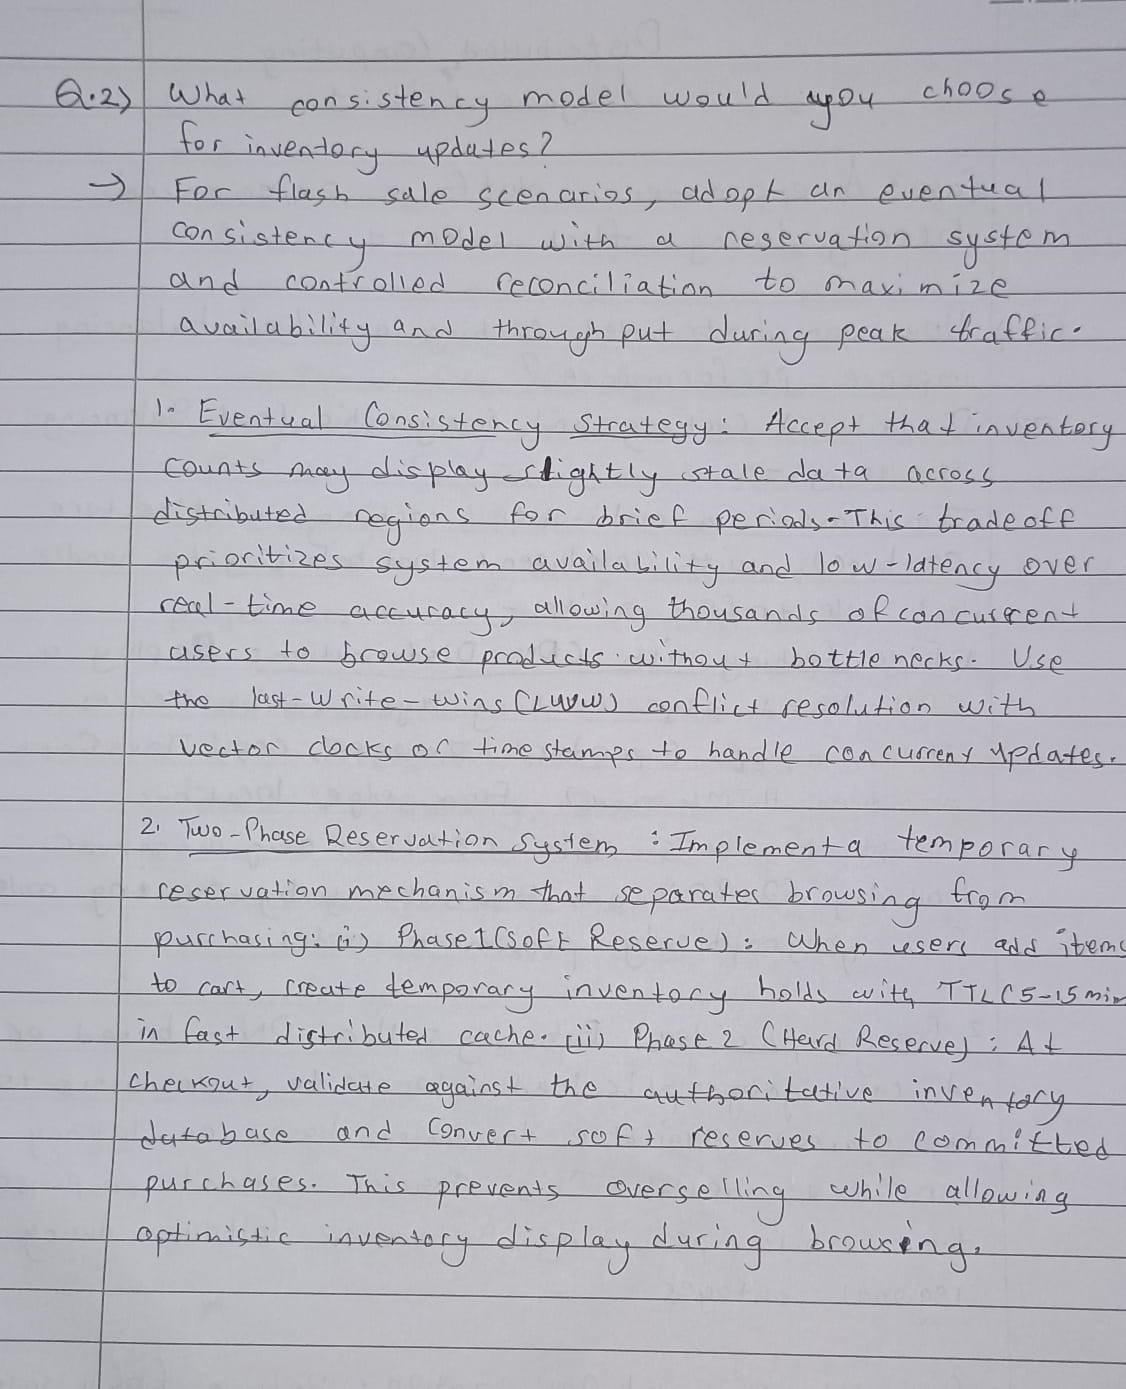 Q.2) What consistency model would you choose
for inventory updates?
→ For flash sale scenarios, adopt an eventual
consistency model with a reservation system
and controlled reconciliation to maximize
availability and throughput during peak traffic.
1. Eventual Consistency Strategy: Accept that inventory
counts may display slightly stale data across
distributed regions for brief periods. This tradeoff
prioritizes system availability and low-latency over
real-time accuracy, allowing thousands of concurrent
users to browse products without bottlenecks. Use
the last-write-wins (LWW) conflict resolution with
vector clocks or timestamps to handle concurrent updates.
2. Two-Phase Reservation System: Implement a temporary
reservation mechanism that separates browsing from
purchasing: (i) Phase I (Soft Reserve): When users add items
to cart, create temporary inventory holds with TTL (5-15 min
in fast distributed cache. (ii) Phase 2 (Hard Reserve): At
checkout, validate against the authoritative inventory
database and convert soft reserves to committed
purchases. This prevents overselling while allowing
optimistic inventory display during browsing.